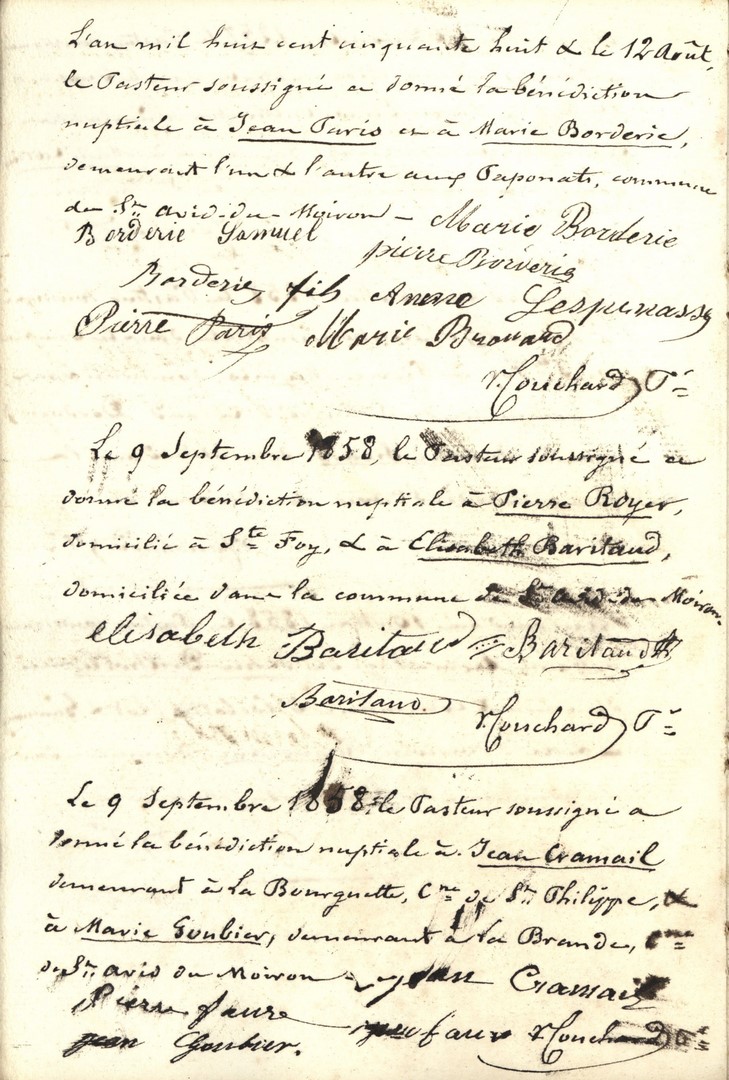 L'an mil huit cent cinquante huit & le 12 Août,
le Pasteur soussigné a donné la bénédiction
nuptiale à Jean Paris et à Marie Borderie,
demeurant l'un & l'autre aux Taponats, commune
de St. avid-du-Moiron - Marie Borderie
Borderie Samuel
pierre Borderie
Borderie fils Anne Lespinasse
Pierre Paris Marie Brouaud
V. Couchard Pr
Le 9 Septembre 1858, le Pasteur soussigné a
donné la bénédiction nuptiale à Pierre Royer,
domicilié à Ste Foy, & à Elisabeth Baritaud,
domiciliée dans la commune de St avid-du-Moiron.
elisabeth Baritaud Baritaud
Baritaud.
V. Couchard Pr
Le 9 Septembre 1858, le Pasteur soussigné a
donné la bénédiction nuptiale à Jean Cramail
demeurant à La Bourguette, Cne de St. Philippe, &
à Marie Goubier, demeurant à la Brande, Cne
de St. avid du Moiron - jean Cramail
Pierre faure faure V. Couchard Pr
jean Goubier.